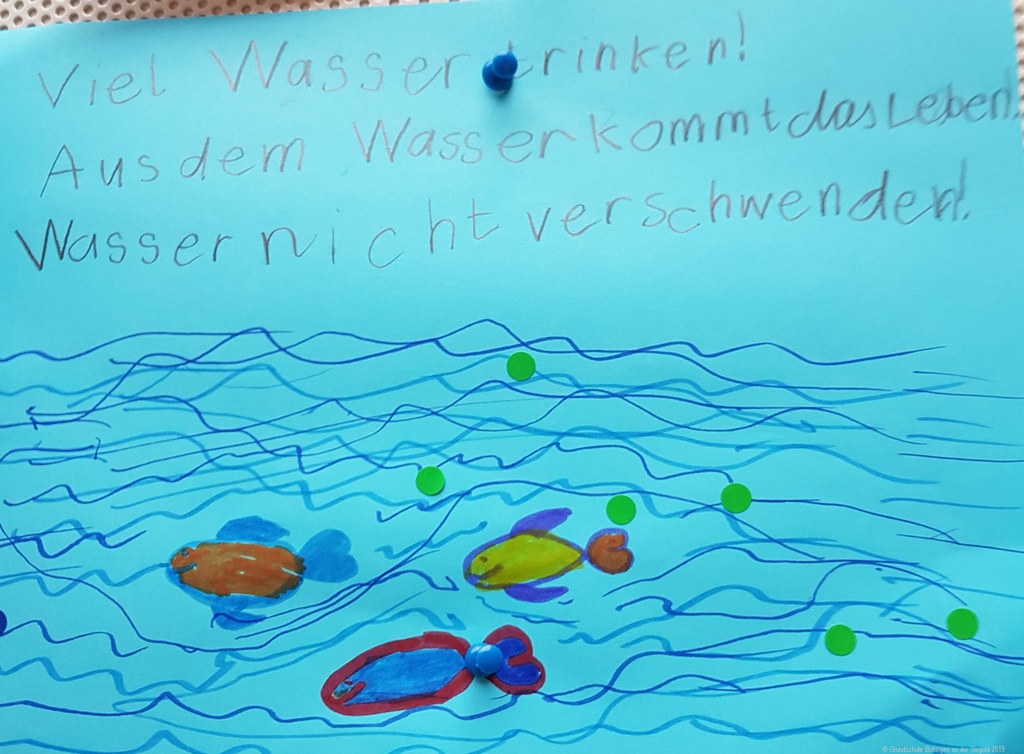 Viel Wasser trinken!
Aus dem Wasser kommt das Leben!
Wasser nicht verschwenden!
© Grundschule an der 2019